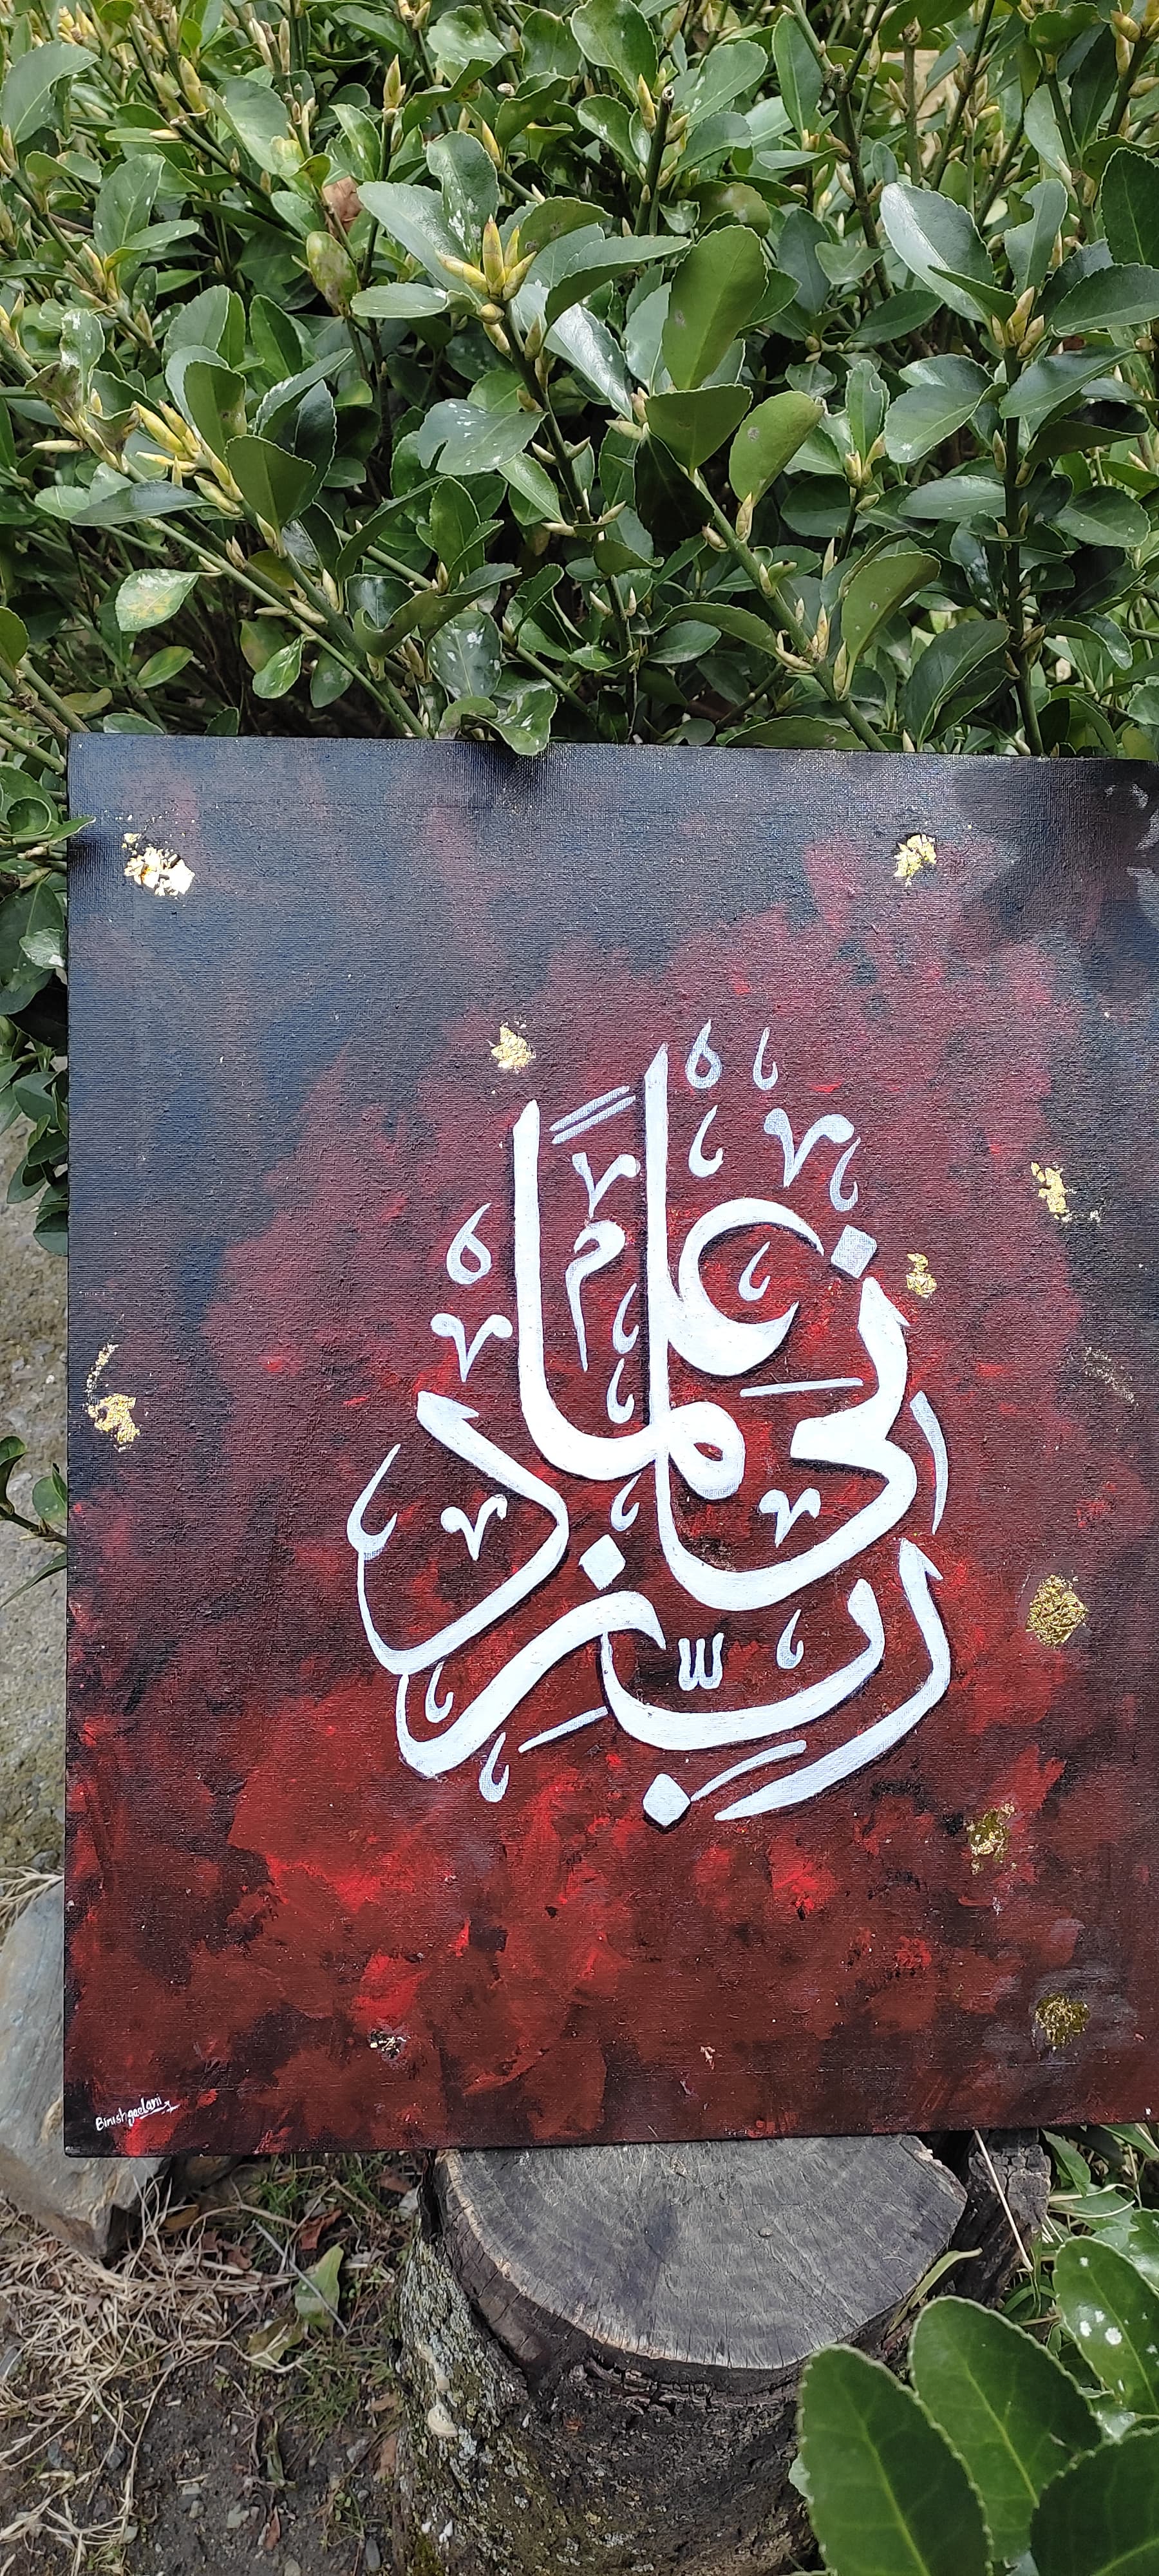 رَبِّ زِدْنِي عِلْمًا
Binishgeelani